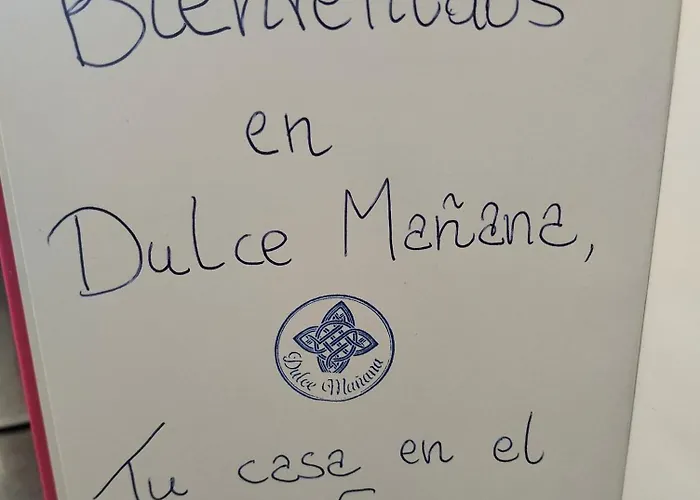 Bienvenidos
en
Dulce Mañana,
Dulce Mañana
Tu casa en el